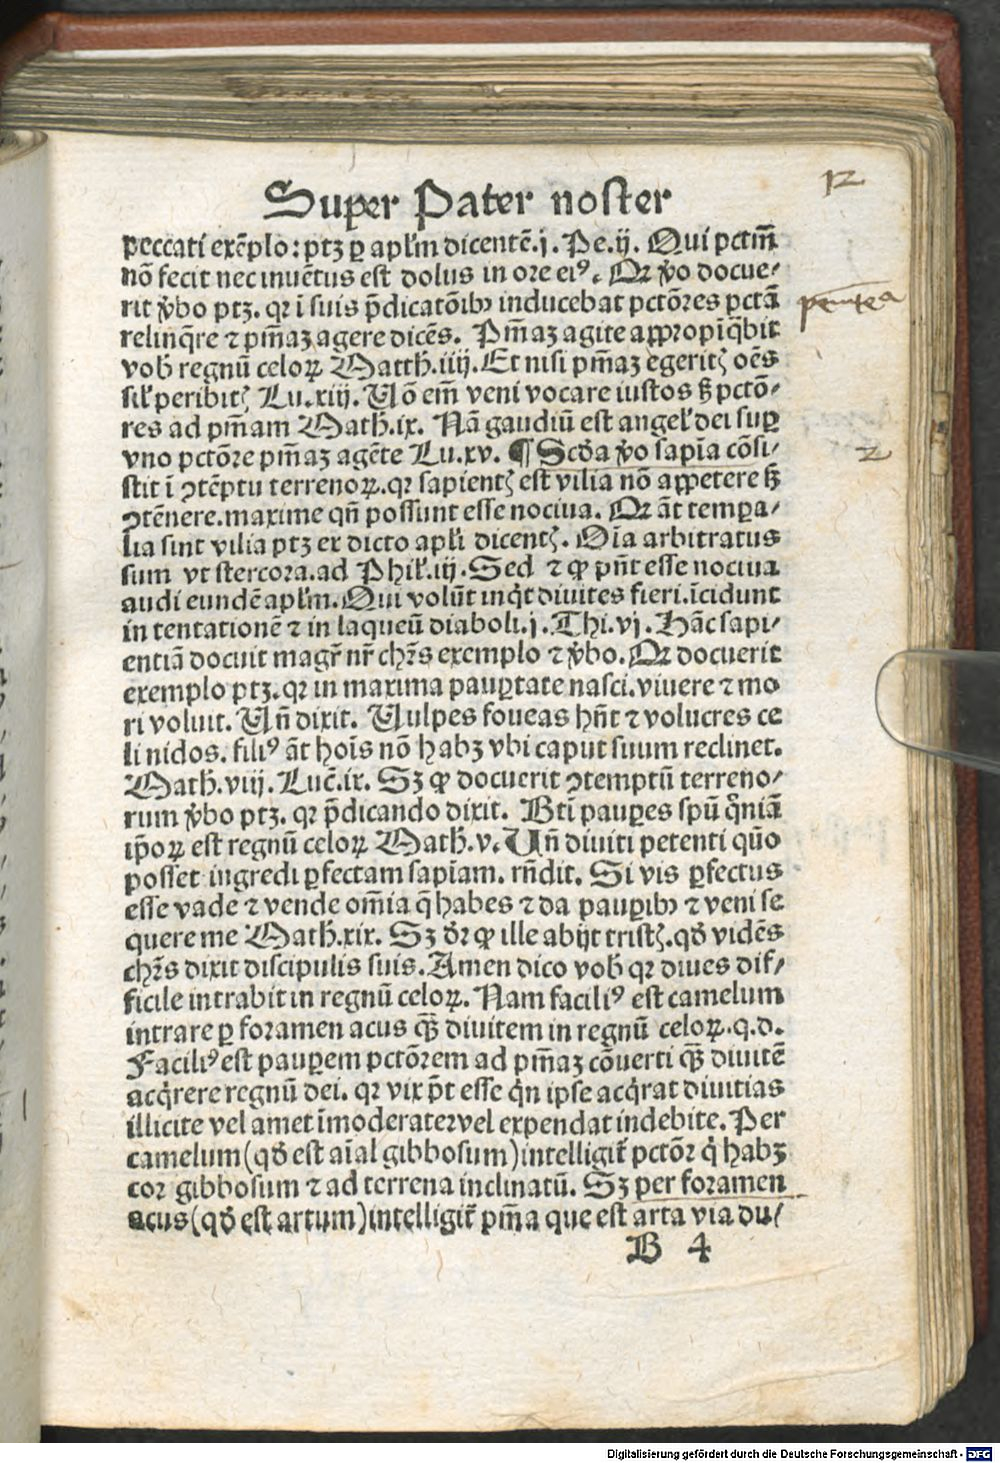 Super Pater noster
12
peccati exẽplo: ptꝫ ꝑ apl̃m dicentẽ .j. Pe .ij. Qui pctm̃
nõ fecit nec inuẽtus est dolus in ore eiꝰ. Qꝛ v̊o docue⸗
rit v̊bo ptꝫ. qꝛ ĩ suis p̃dicatõibꝰ inducebat pctõres pctã
relinq̃re ⁊ pm̃aꝫ agere dicẽs. Pm̃aꝫ agite appropĩq̃bit
vob̃ regnũ celoꝝ Matth̃. iiij. Et nisi pm̃aꝫ egeritꝭ oẽs
sil̃ peribitꝭ Lu. xiij. Nõ em̃ veni vocare iustos sꝫ pctõ⸗
res ad pm̃am Math̃. ix. Nã gaudiũ est angel̃ dei suꝑ
vno pctõre pm̃aꝫ agẽte Lu. xv. ¶ Scḋa v̊o sapĩa cõsi⸗
stit ĩ ꝯtẽptu terrenoꝝ. qꝛ sapientꝭ est vilia nõ appetere sꝫ
ꝯtẽnere. maxime qñ possunt esse nociua. Qꝛ ãt tempa⸗
lia sint vilia ptꝫ ex dicto apl̃i dicentꝭ. Oĩa arbitratus
sum vt stercora. ad Phil̃. iij. Sed ⁊ ꝙ pñt esse nociua
audi eundẽ apl̃m. Qui volũt inq̇t diuites fieri. ĩcidunt
in tentationẽ ⁊ in laqueũ diaboli. j. Thi. vj. Hãc sapi⸗
entiã docuit magr̃ nr̃ chr̃s exemplo ⁊ v̊bo. Qꝛ docuerit
exemplo ptꝫ. qꝛ in maxima pauꝑtate nasci. viuere ⁊ mo
ri voluit. Vñ dixit. Vulpes foueas hñt ⁊ volucres ce
li nidos. filiꝰ ãt hoĩs nõ habꝫ vbi caput suum reclinet.
Math̃. viij. Luc̃. ix. Sꝫ ꝙ docuerit ꝯtemptũ terreno⸗
rum v̊bo ptꝫ. qꝛ p̃dicando dixit. Bti̇̃ pauꝑes spũ q̊niã
ip̃oꝝ est regnũ celoꝝ Math̃. v. Vñ diuiti petenti qũo
posset ingredi ꝑfectam sapĩam. rñdit. Si vis ꝑfectus
esse vade ⁊ vende om̃ia q̃ habes ⁊ da pauꝑibꝰ ⁊ veni se
quere me Math̃. xix. Sꝫ dr̃ ꝙ ille abijt tristꝭ. qḋ vidẽs
chr̃s dixit discipulis suis. Amen dico vob̃ qꝛ diues dif⸗
ficile intrabit in regnũ celoꝝ. Nam faciliꝰ est camelum
intrare ꝑ foramen acus qꝫ̃ diuitem in regnũ celoꝝ. q. d.
Faciliꝰ est pauꝑem pctõrem ad pm̃aꝫ cõuerti qꝫ̃ diuitẽ
acq̇rere regnũ dei. qꝛ vix p̃t esse q̇n ipse acq̇rat diuitias
illicite vel amet ĩmoderate: vel expendat indebite. Per
camelum (qḋ est aĩal gibbosum) intelligit̃ pctõꝛ q̇ habꝫ
cor gibbosum ⁊ ad terrena inclinatũ. Sꝫ per foramen
acus (qḋ est artum) intelligit̃ pm̃a que est arta via du⸗
B 4
2
Digitalisierung gefördert durch die Deutsche Forschungsgemeinschaft - DFG